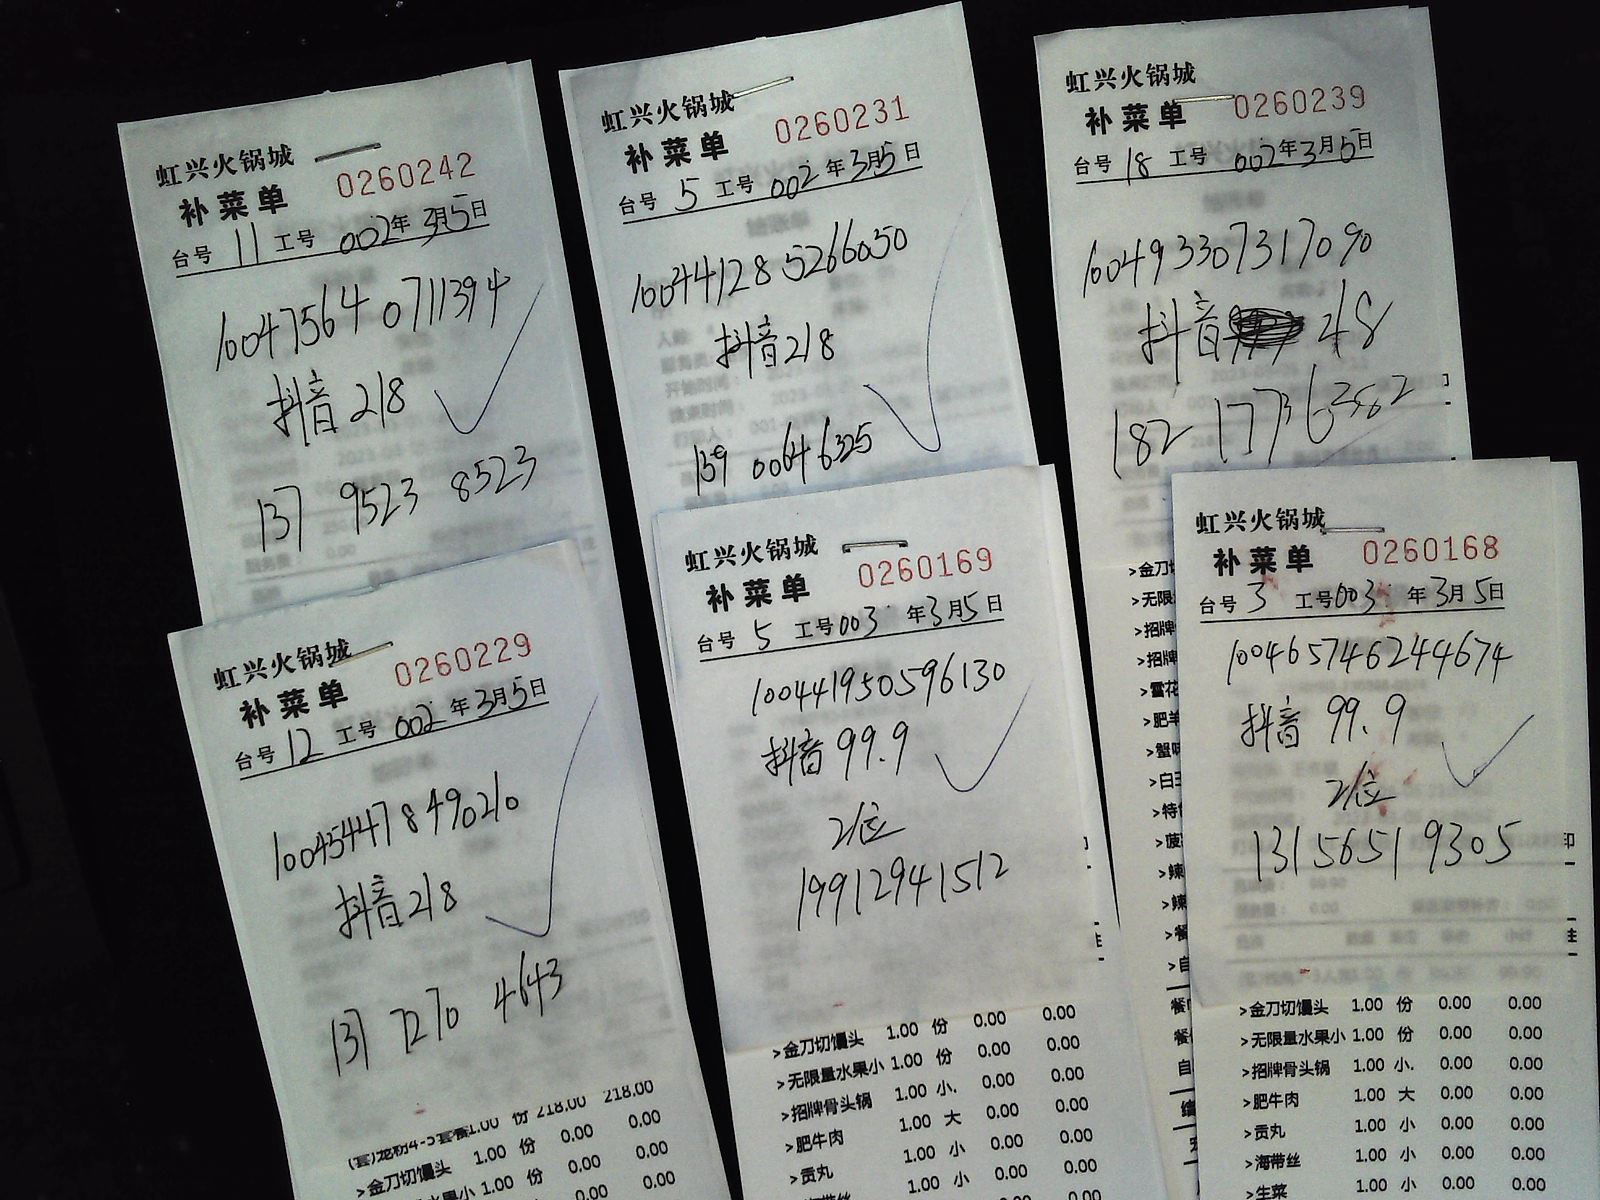 虹兴火锅城
补菜单 0260242
台号 11 工号 002年3月5日
10047564 0711394
抖音218
137 9523 8523
虹兴火锅城
补菜单 0260231
台号 5 工号 002年3月5日
100441285266050
抖音218
139 0064 6325
虹兴火锅城
补菜单 0260239
台号 18 工号 002年3月5日
100493307317090
抖音 218
182 1773 6382
虹兴火锅城
补菜单 0260229
台号 12 工号 002年3月5日
100454478490210
抖音218
137 7270 4643
(套)龙粉4-5套餐1.00 份 218.00 218.00
>金刀切馒头 1.00 份 0.00 0.00
水果小 1.00 份 0.00 0.00
虹兴火锅城
补菜单 0260169
台号 5 工号003 年3月5日
100441950596130
抖音 99.9
2位
19912941512
>金刀切馒头 1.00 份 0.00 0.00
>无限量水果小 1.00 份 0.00 0.00
>招牌骨头锅 1.00 小. 0.00 0.00
>肥牛肉 1.00 大 0.00 0.00
>贡丸 1.00 小 0.00 0.00
海带丝 1.00 小 0.00 0.00
>金刀
>无限
>招牌
>招牌
>雪花
>肥羊
>蟹
>白玉
>特
>菠
>辣
>辣
>餐
>自
餐
餐
自
虹兴火锅城
补菜单 0260168
台号 3 工号003 年3月5日
100465746244674
抖音 99.9
2位
13156519305
>金刀切馒头 1.00 份 0.00 0.00
>无限量水果小 1.00 份 0.00 0.00
>招牌骨头锅 1.00 小. 0.00 0.00
>肥牛肉 1.00 大 0.00 0.00
>贡丸 1.00 小 0.00 0.00
>海带丝 1.00 小 0.00 0.00
>生菜 1.00 小 0.00 0.00